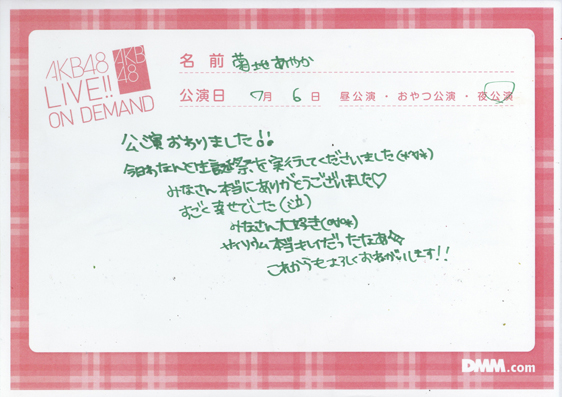 AKB48
LIVE!!
ON DEMAND
AKB
48
名 前 菊地あやか
公演日 7月 6日 昼公演・おやつ公演・夜公演
公演おわりました!!
今日わなんと生誕祭を実行してくださいました(*^o^*)
みなさん本当にありがとうございました♡
すごく幸せでした(泣)
みなさん大好き(*^o^*)
サイリウム本当キレイだったなあ☆
これからもよろしくおねがいします!!
DMM.com